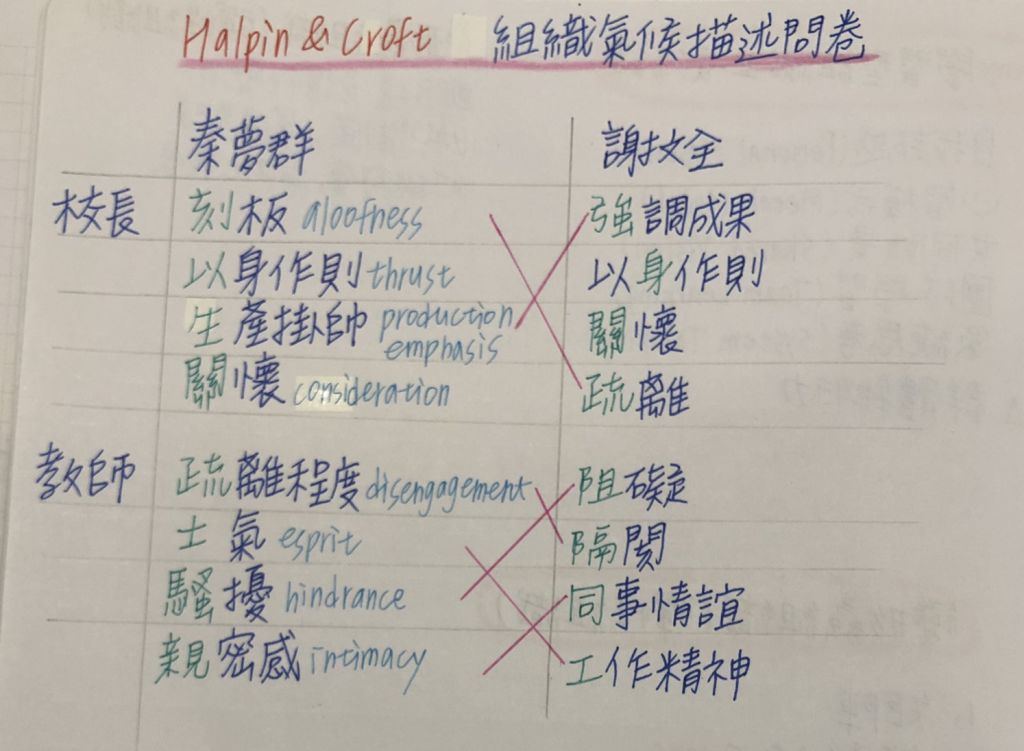 Halpin & Croft 組織氣候描述問卷
秦夢群 謝文全
校長 刻板 aloofness 強調成果
以身作則 thrust 以身作則
生產掛帥 production emphasis 關懷
關懷 consideration 疏離
教師 疏離程度 disengagement 阻礙
士氣 esprit 隔閡
騷擾 hindrance 同事情誼
親密感 intimacy 工作精神